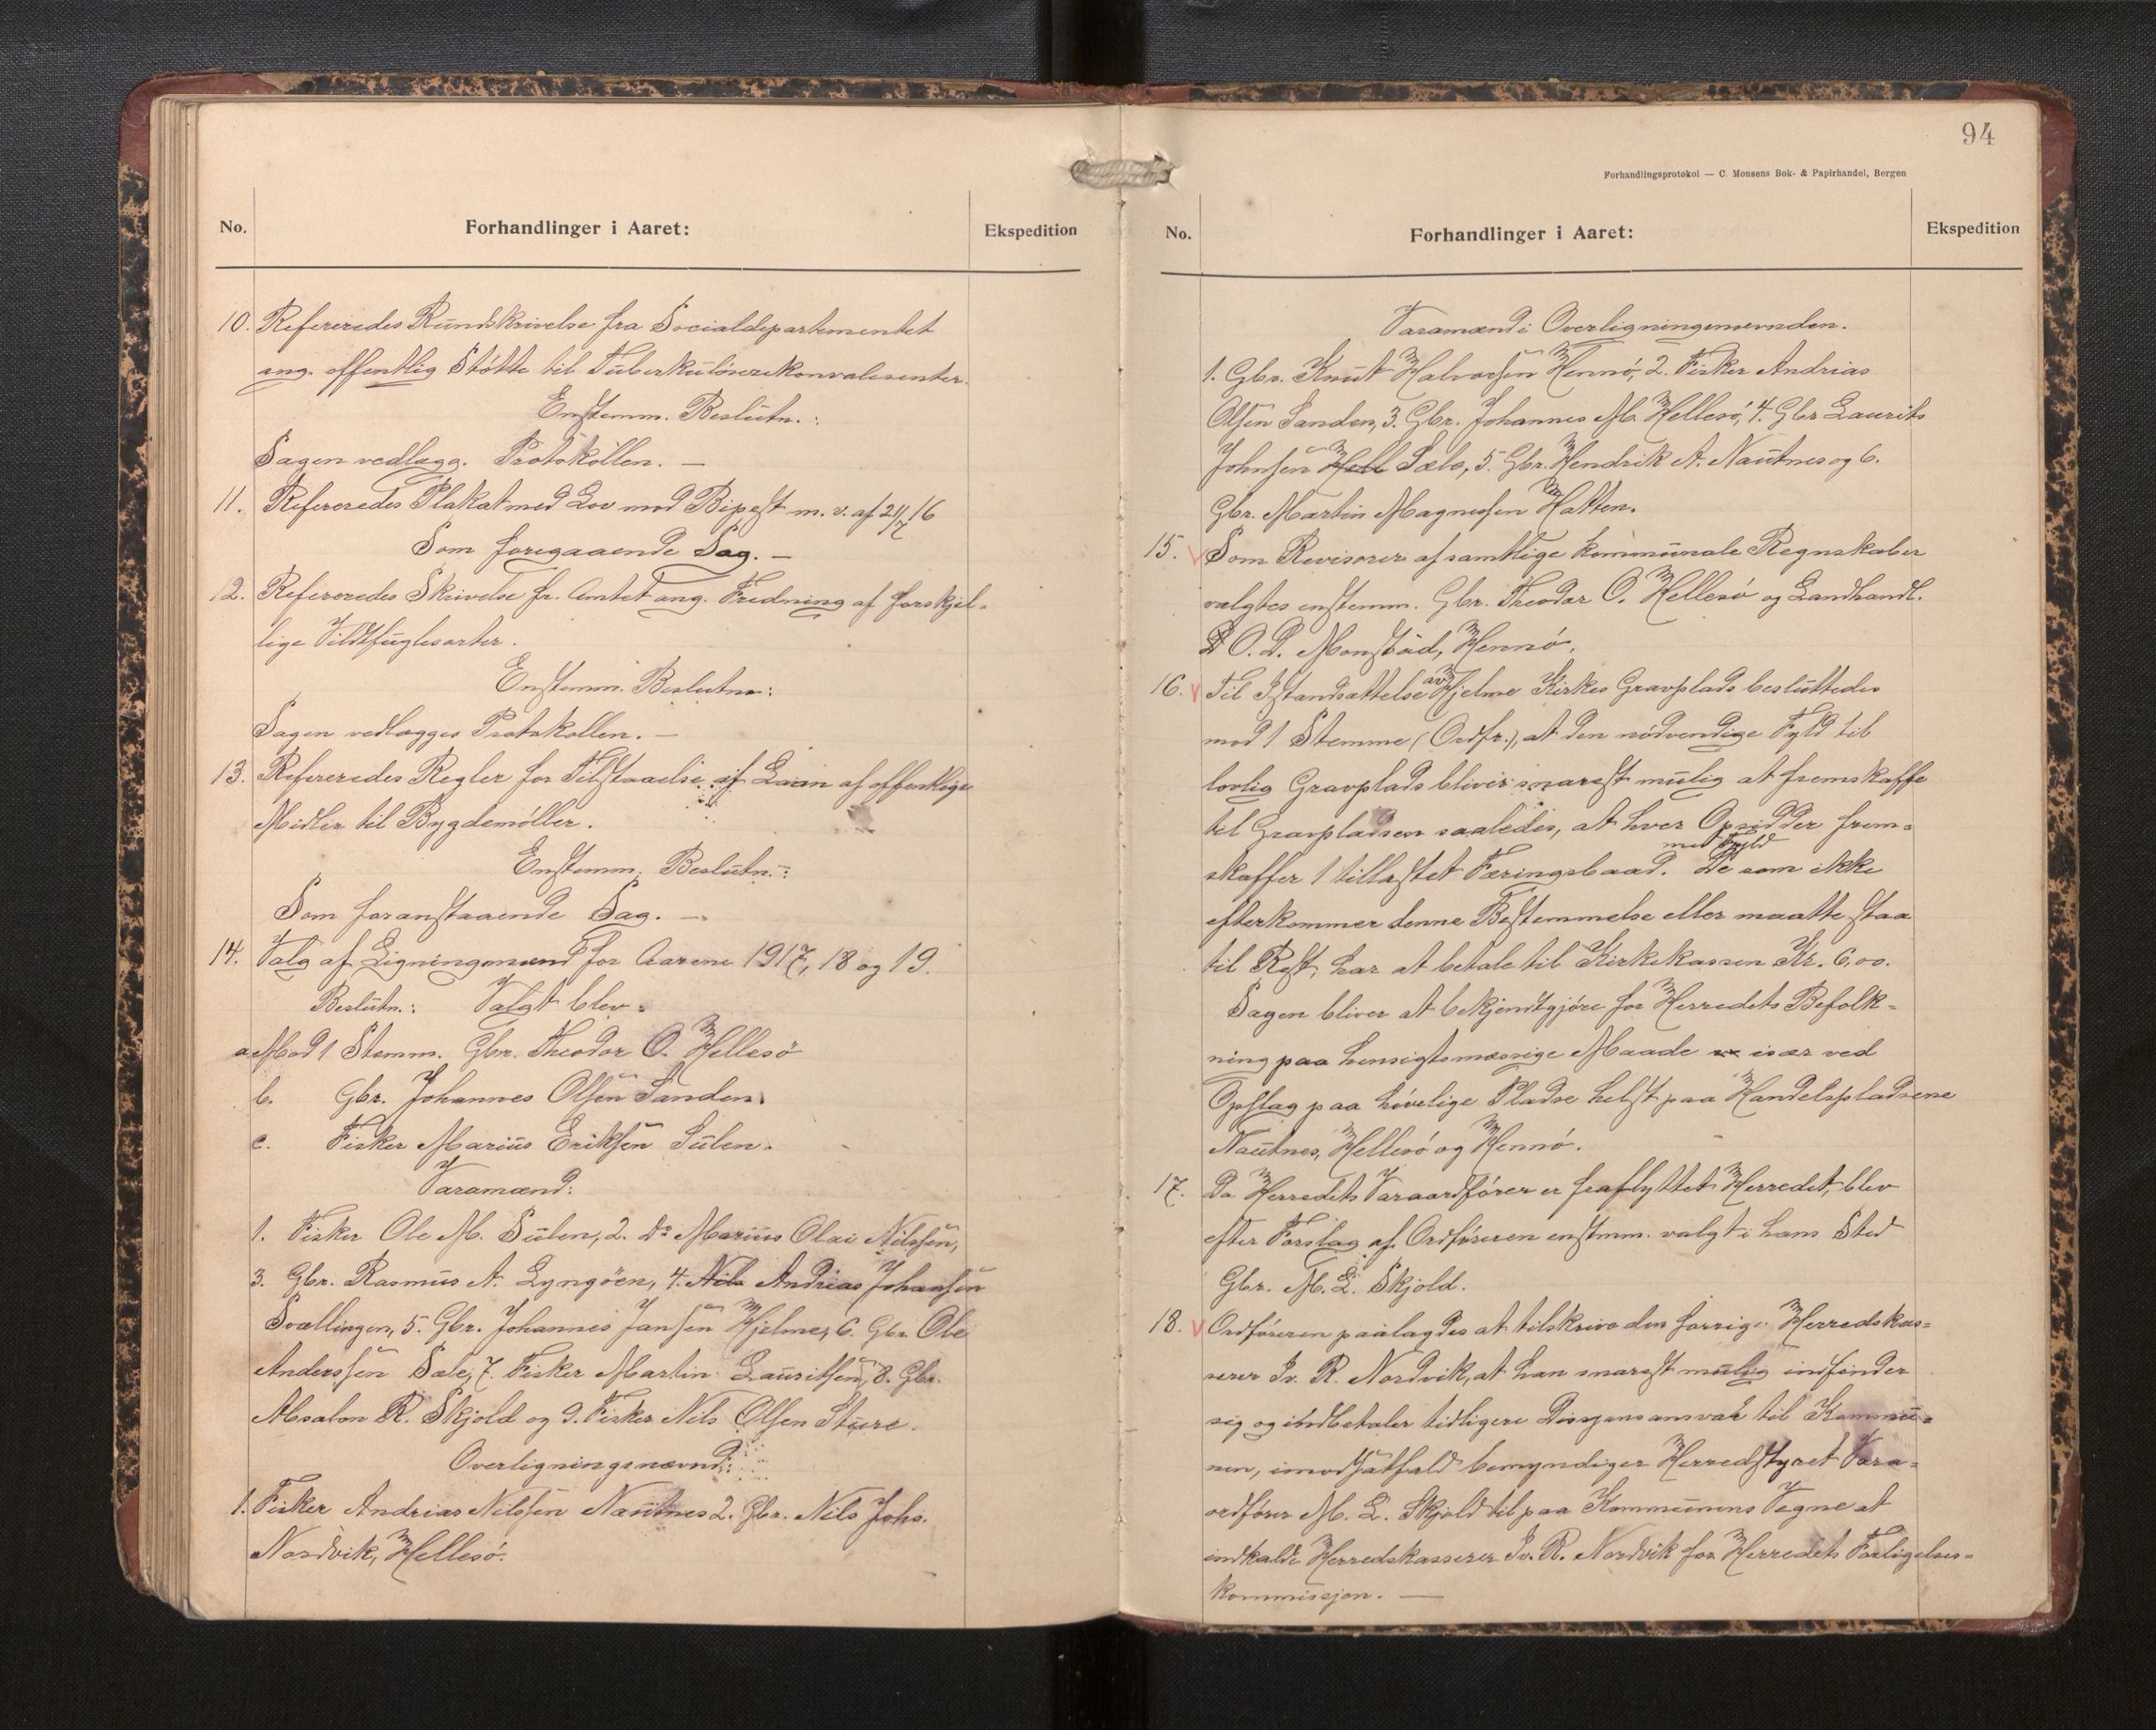 No.
Forhandlinger i Aaret:
Ekspedition
10. Refereredes Rundskrivelse fra Socialdepartementet
ang. offentlig Støtte til Tuberkuløserekonvalesenter.
Enstemm. Beslutn.:
Sagen vedlægg. Protokollen. —
11. Refereredes Plakat med Lov mod Bipest m. v. af 21/7 16
Som foregaaende Sag. —
12. Refereredes Skrivelse fr. Amtet ang. Fredning af forskjel-
lige Vildtfuglesorter.
Enstemm. Beslutn.:
Sagen vedlægges Protokollen. —
13. Refereredes Regler for Tilstaaelse af Laan af offentlige
Midler til Bygdemøller.
Enstemm. Beslutn.:
Som foranstaaende Sag. —
14. Valg af Ligningsmænd for Aarene 1917, 18 og 19.
Beslutn.: Valgt blev:
a. Mod 1 Stemm. Gbr. Theodor O. Hellesø
b. Gbr. Johannes Olsen Sanden.
c. Fisker Marius Eriksen Sulen.
Varamænd:
1. Fisker Ole M. Sulen, 2. do Marius Olai Nilssen,
3. Gbr. Rasmus A. Lyngøen, 4. Nils Andrias Johansen
Svællingen, 5. Gbr. Johannes Jansen Hjelme, 6. Gbr Ole
Anderssen Sæle, 7. Fisker Martin Lauritsen, 8. Gbr.
Absalon R. Skjold og 9. Fisker Nils Olsen Sture.
Overligningsnævnd:
1. Fisker Andrias Nilssen Nautnes 2. Gbr. Nils Johs.
Nordvik, Hellesø.
94
Forhandlingsprotokol — C. Monsens Bok- & Papirhandel, Bergen
No.
Forhandlinger i Aaret:
Ekspedition
Varamænd i Overligningsnævnden.
1. Gbr. Knut Halvorsen Hennø, 2. Fisker Andrias
Olsen Sanden, 3. Gbr. Johannes M. Hellesø, 4. Gbr Laurits
Johnsen Hell Sæle, 5. Gbr. Hendrik A. Nautnes og 6.
Gbr. Martin Magnussen Hatten.
15. Som Revisorer af samtlige kommunale Regnskaber
valgtes enstemm. Gbr. Theodor O. Hellesø og Landhandl.
O. P. Monstad, Hennø.
16. Til Istandsættelse av Hjelme Kirkes Gravplads besluttedes
mod 1 Stemme (Ordfr.), at den nødvendige Fyld til
lovlig Gravplads bliver snarest mulig at fremskaffe
til Gravpladsen saaledes, at hver Opsidder frem-
skaffer 1 tillastet Færingsbaad med Fyld. De som ikke
efterkommer denne Bestemmelse eller maatte staa
til Rest, har at betale til Kirkekassen Kr. 6,00.
Sagen bliver at bekjendtgjøre for Herredets Befolk-
ning paa hensigtsmæssige Maade især ved
Opslag paa høvelige Pladse helst paa Handelspladsene
Nautnes, Hellesø og Hennø.
17. Da Herredets Varaordfører er fraflyttet Herredet, blev
efter Forslag af Ordføreren enstmm. valgt i hans Sted
Gbr. M. L. Skjold.
18. Ordføreren paalagdes at tilskrive den forrige Herredskas-
serer Iv. R. Nordvik, at han snarest mulig indfinder
sig og indbetaler tidligere Dissensansvar til Kommu-
nen, imodsatfald bemyndiger Herredstyret Vara-
ordfører M. L. Skjold til paa Kommunens Vegne at
indkalde Herredskasserer Iv. R. Nordvik for Herredets Forligelses-
kommissjon. —